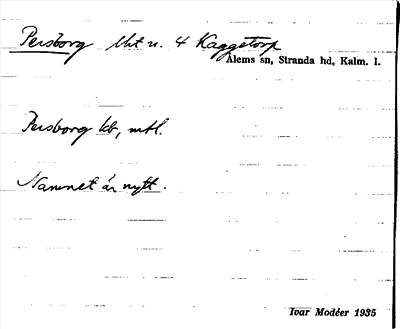 Persborg lht u. 4 Kaggetorp
Ålems sn, Stranda hd, Kalm. l.
Persborg kb, mtl.
Namnet är nytt.
Ivar Modéer 1935